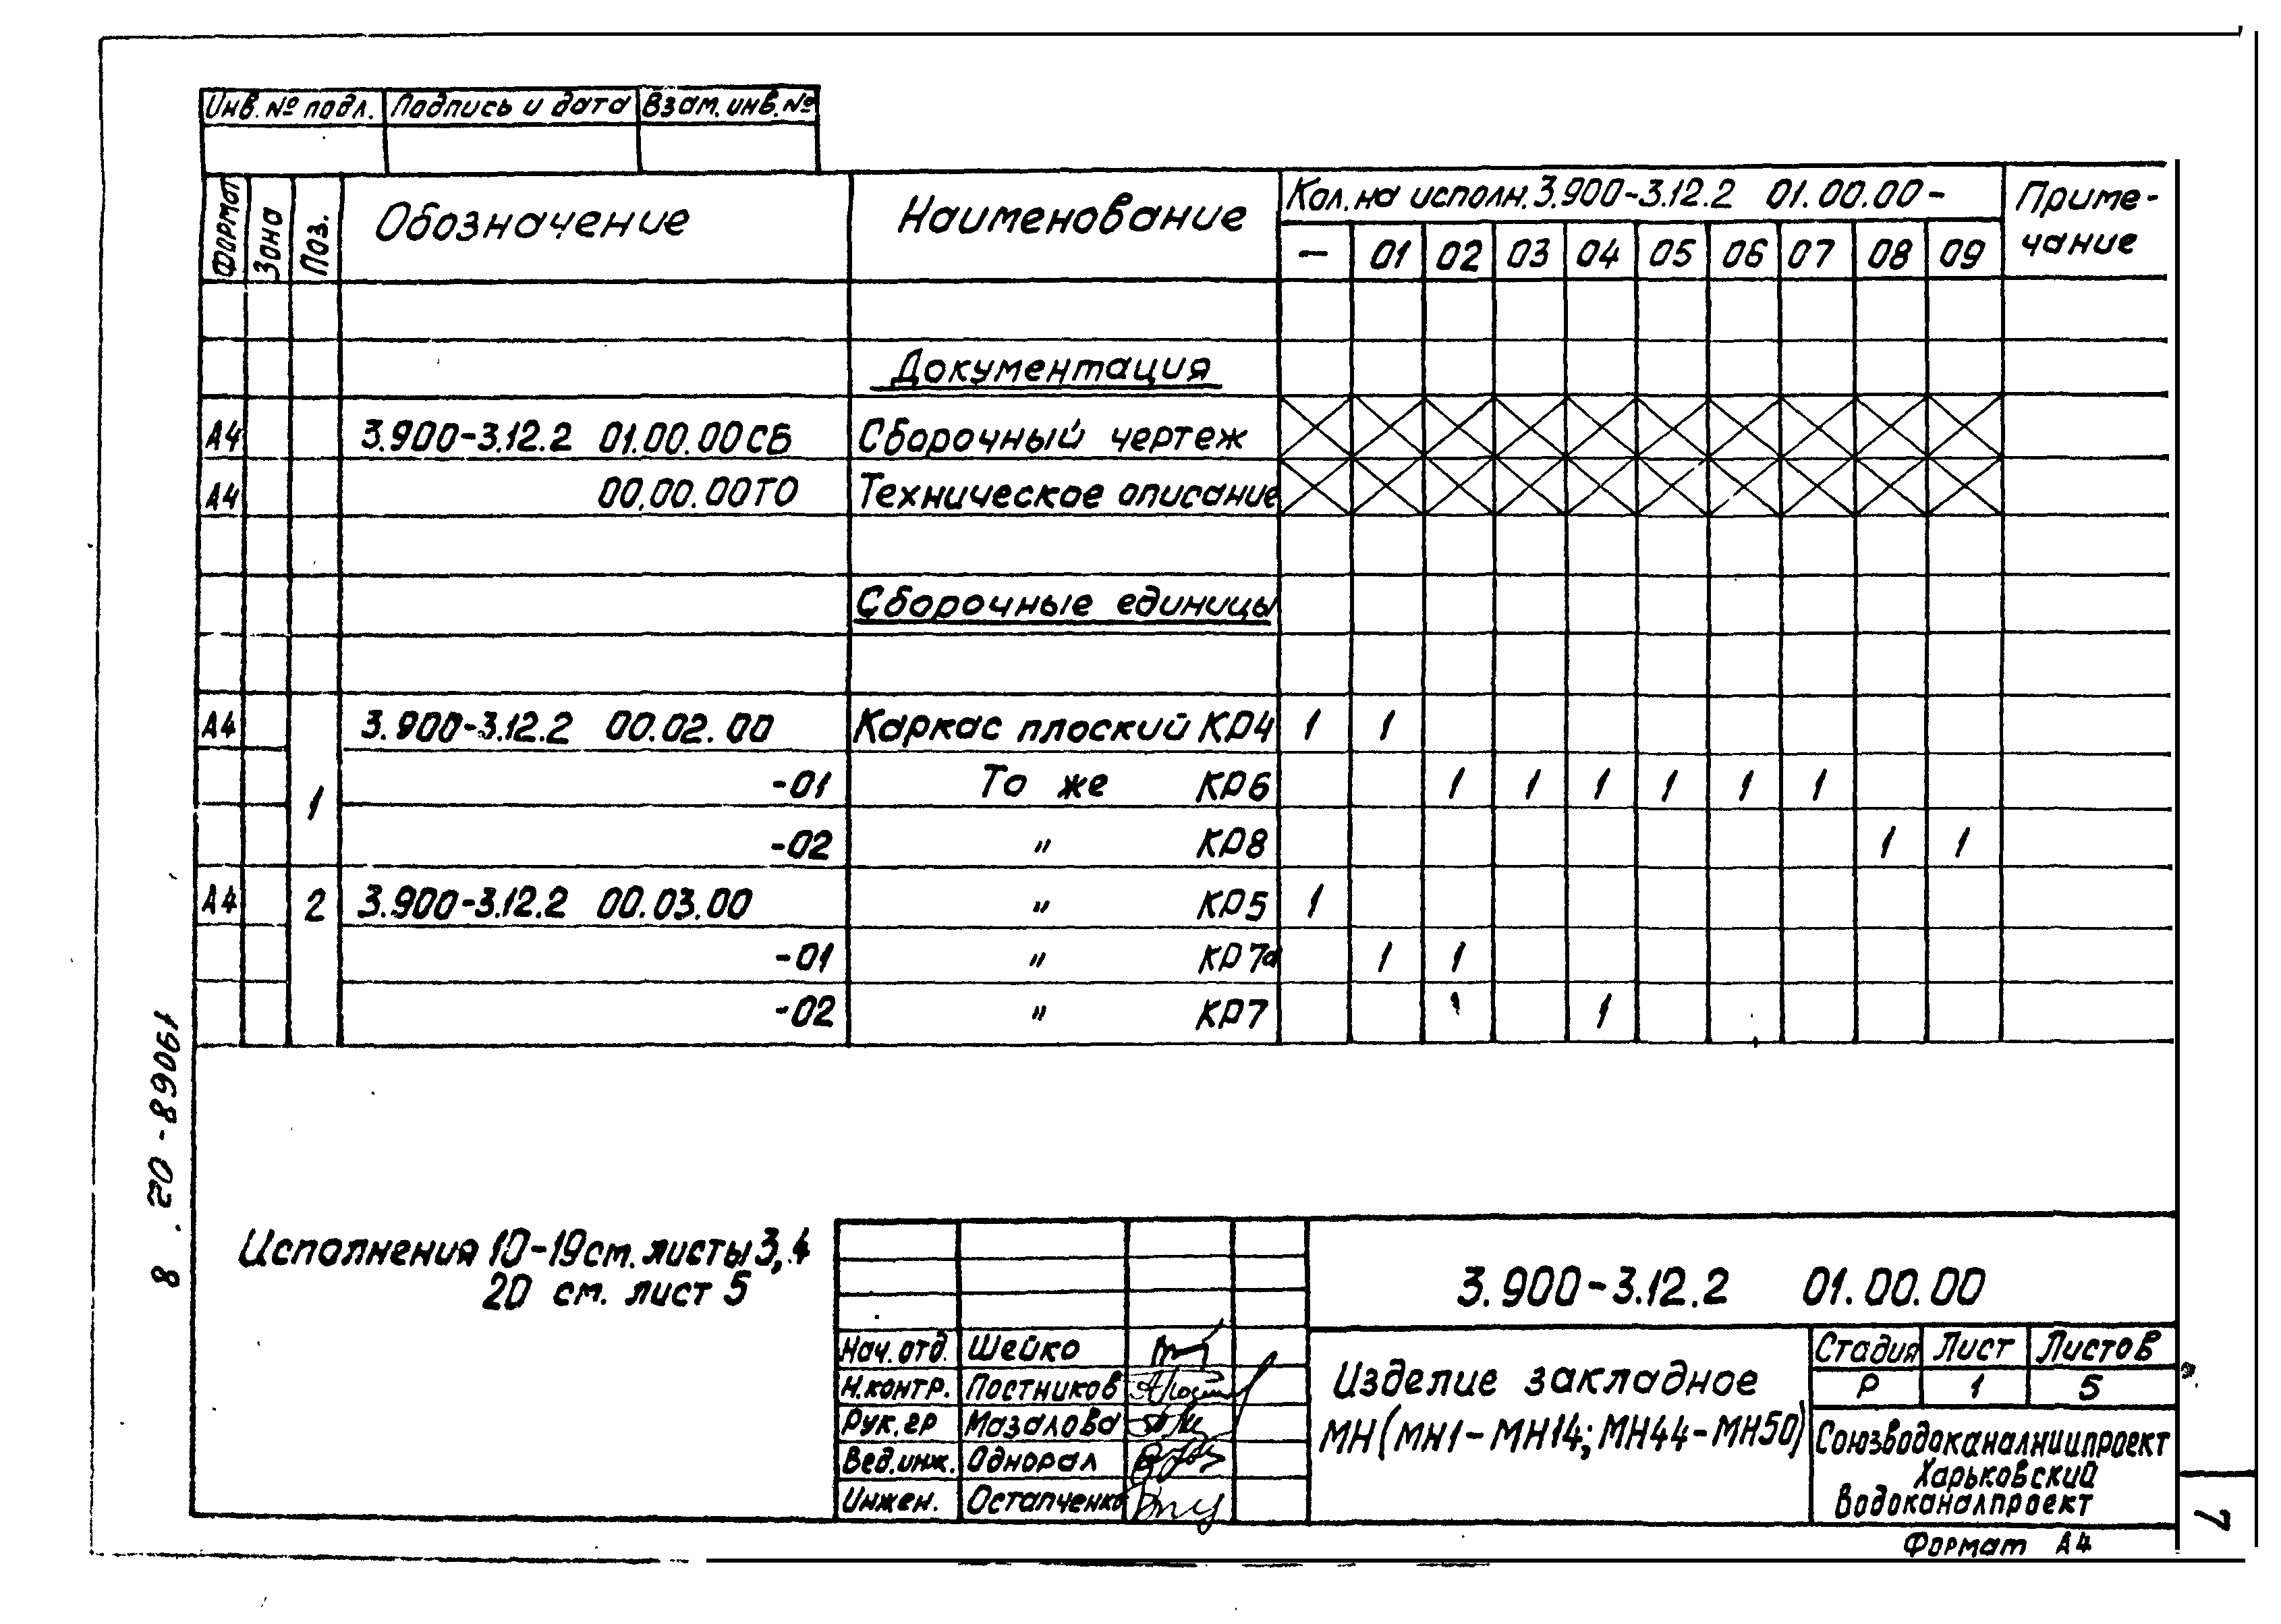 Инв. № подл. Подпись и дата Взам. инв. №
Формат Зона Поз. Обозначение Наименование Кол. на исполн. 3.900-3.12.2 01.00.00- Приме-
чание
— 01 02 03 04 05 06 07 08 09
Документация
А4 3.900-3.12.2 01.00.00СБ Сборочный чертеж
А4 00.00.00ТО Техническое описание
Сборочные единицы
А4 3.900-3.12.2 00.02.00 Каркас плоский КР4 1 1
1 -01 То же КР6 1 1 1 1 1 1
-02 " КР8 1 1
А4 2 3.900-3.12.2 00.03.00 " КР5 1
-01 " КР7а 1 1
-02 " КР7 1
19068-02. 8
Исполнения 10-19 см. листы 3,4
20 см. лист 5
3.900-3.12.2 01.00.00
Нач. отд. Шейко
Н.контр. Постников
Рук. гр Мазалова
Вед. инж. Однорал
Инжен. Остапченко
Изделие закладное
МН(МН1-МН14; МН44-МН50)
Стадия Лист Листов
Р 1 5
Союзводоканалниипроект
Харьковский
Водоканалпроект
Формат А4
7